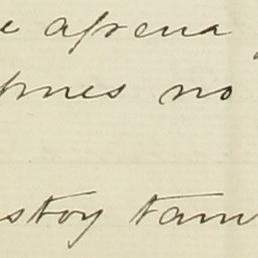 e afrena
pues no
stoy tam